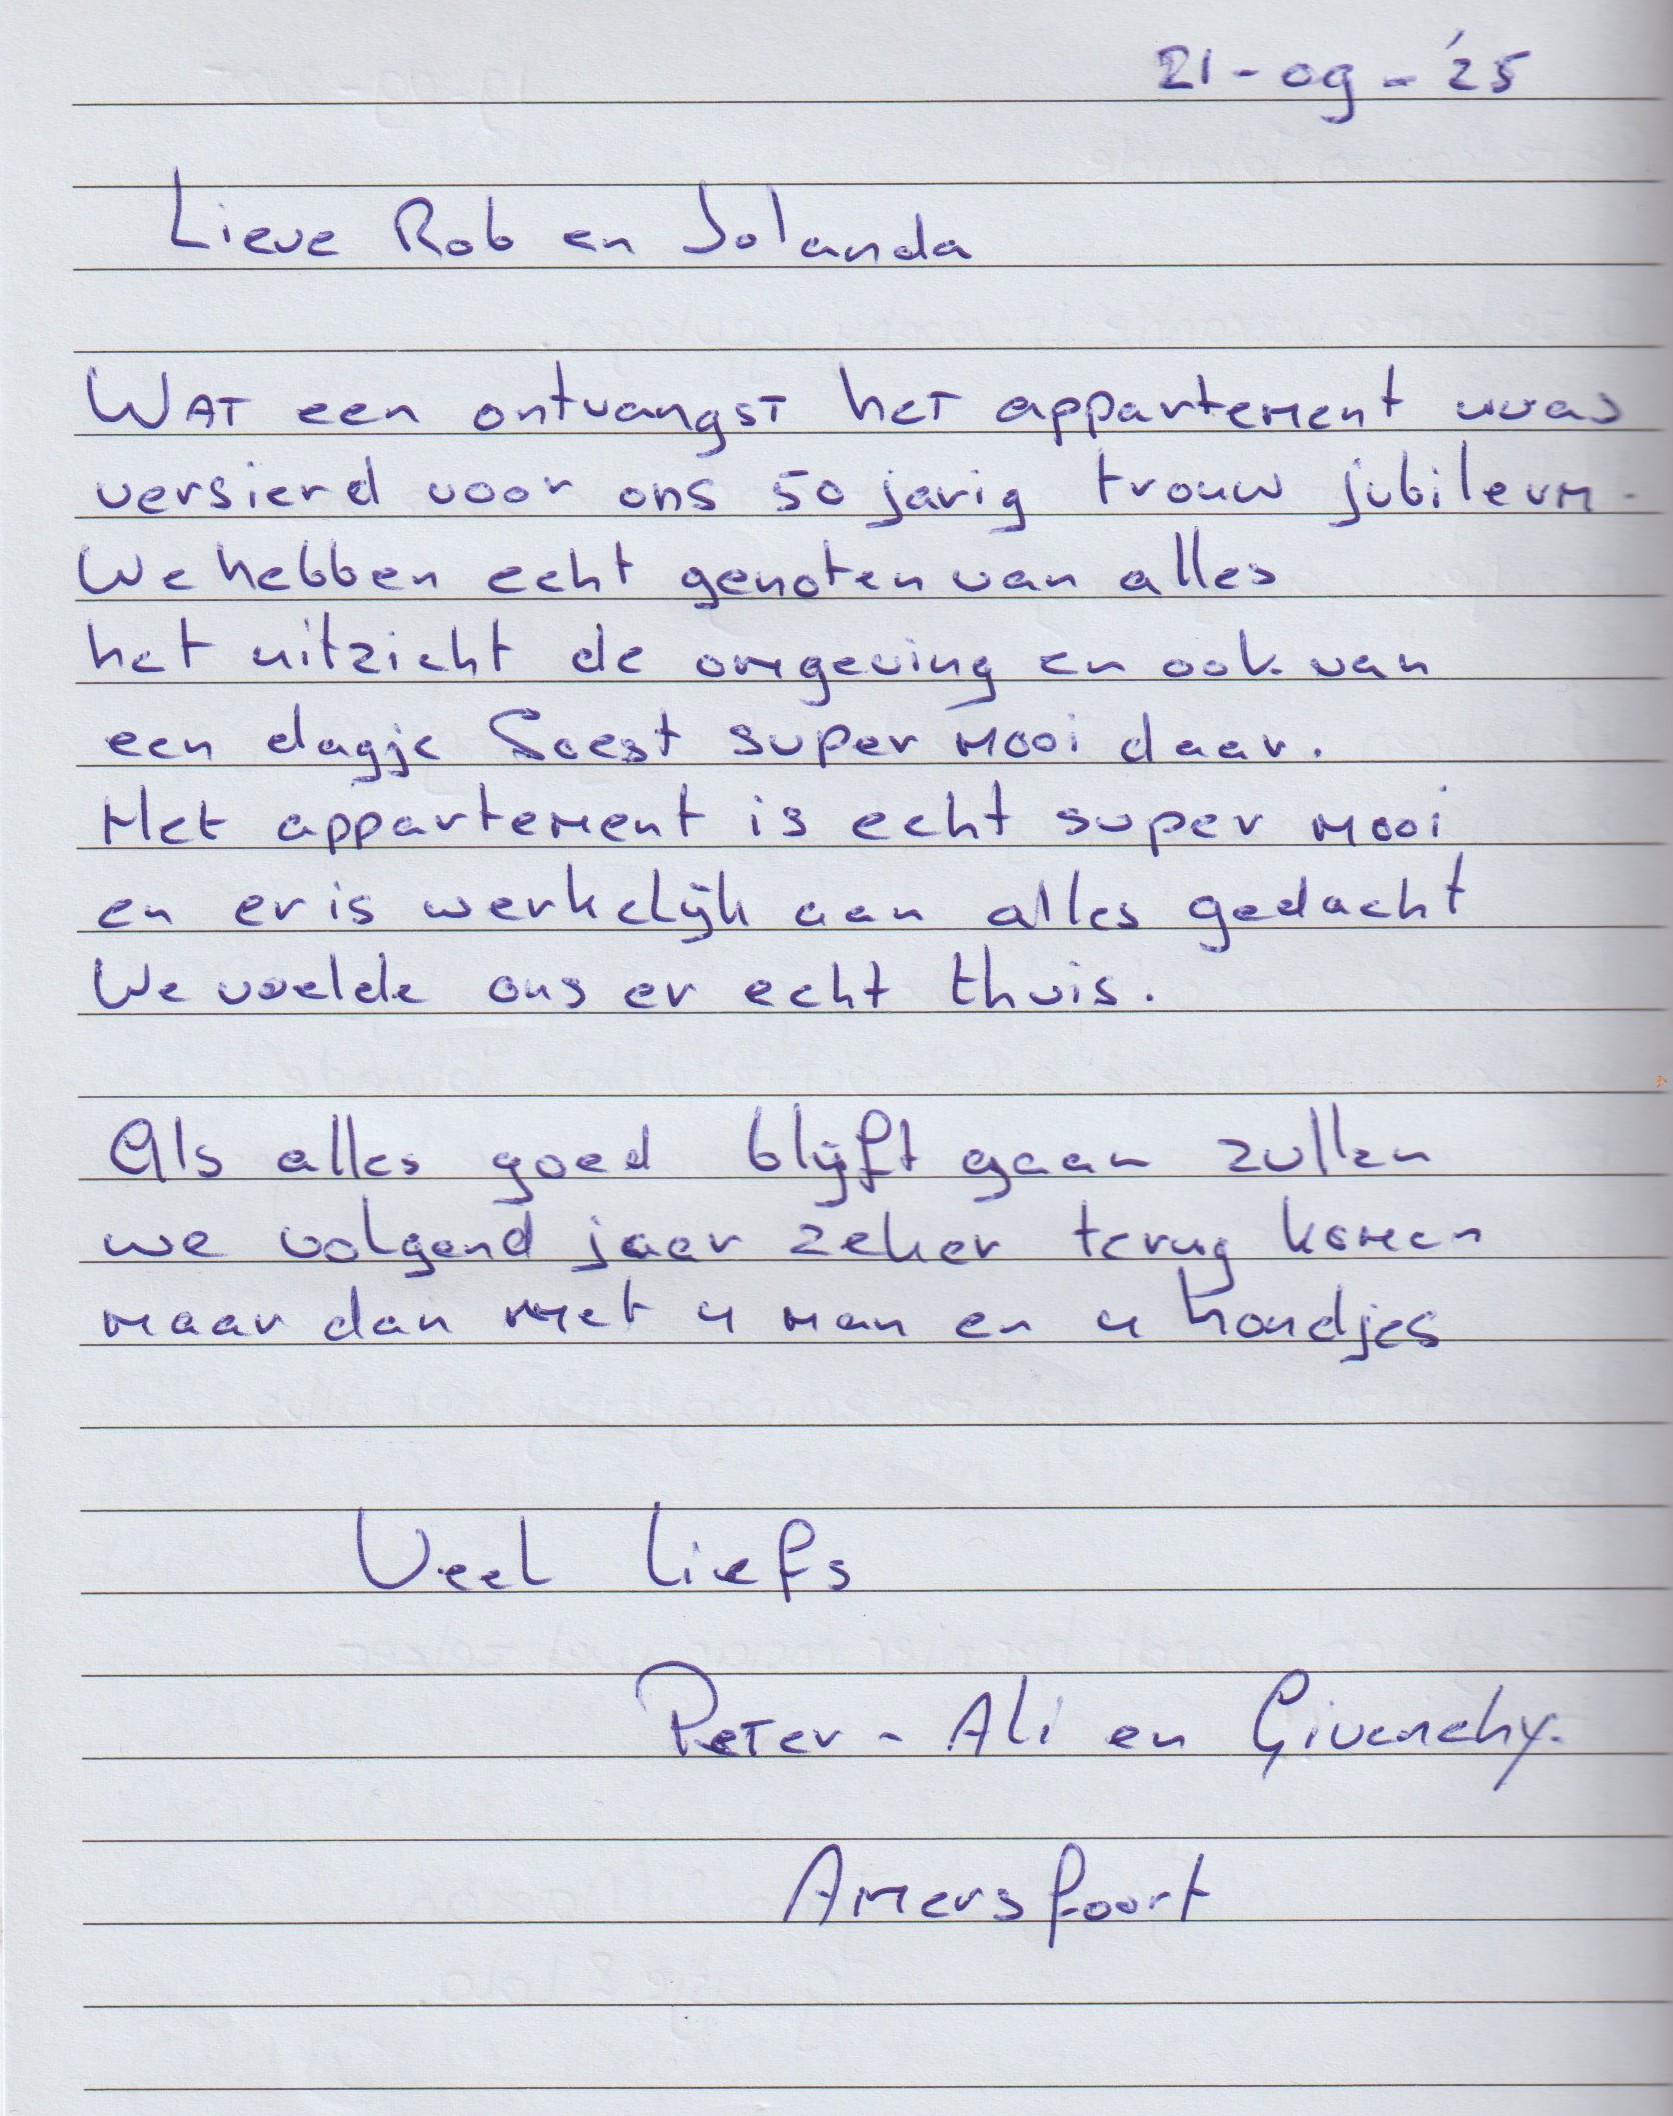 21-09-'25
Lieve Rob en Jolanda
Wat een ontvangst het appartement was
versierd voor ons 50 jarig trouw jubileum.
We hebben echt genoten van alles
het uitzicht de omgeving en ook van
een dagje Soest super mooi daar.
Het appartement is echt super mooi
en er is werkelijk aan alles gedacht
We voelde ons er echt thuis.
Als alles goed blijft gaan zullen
we volgend jaar zeker terug komen
maar dan met 4 man en 4 hondjes
Veel liefs
Peter - Ali en Givenchy.
Amersfoort